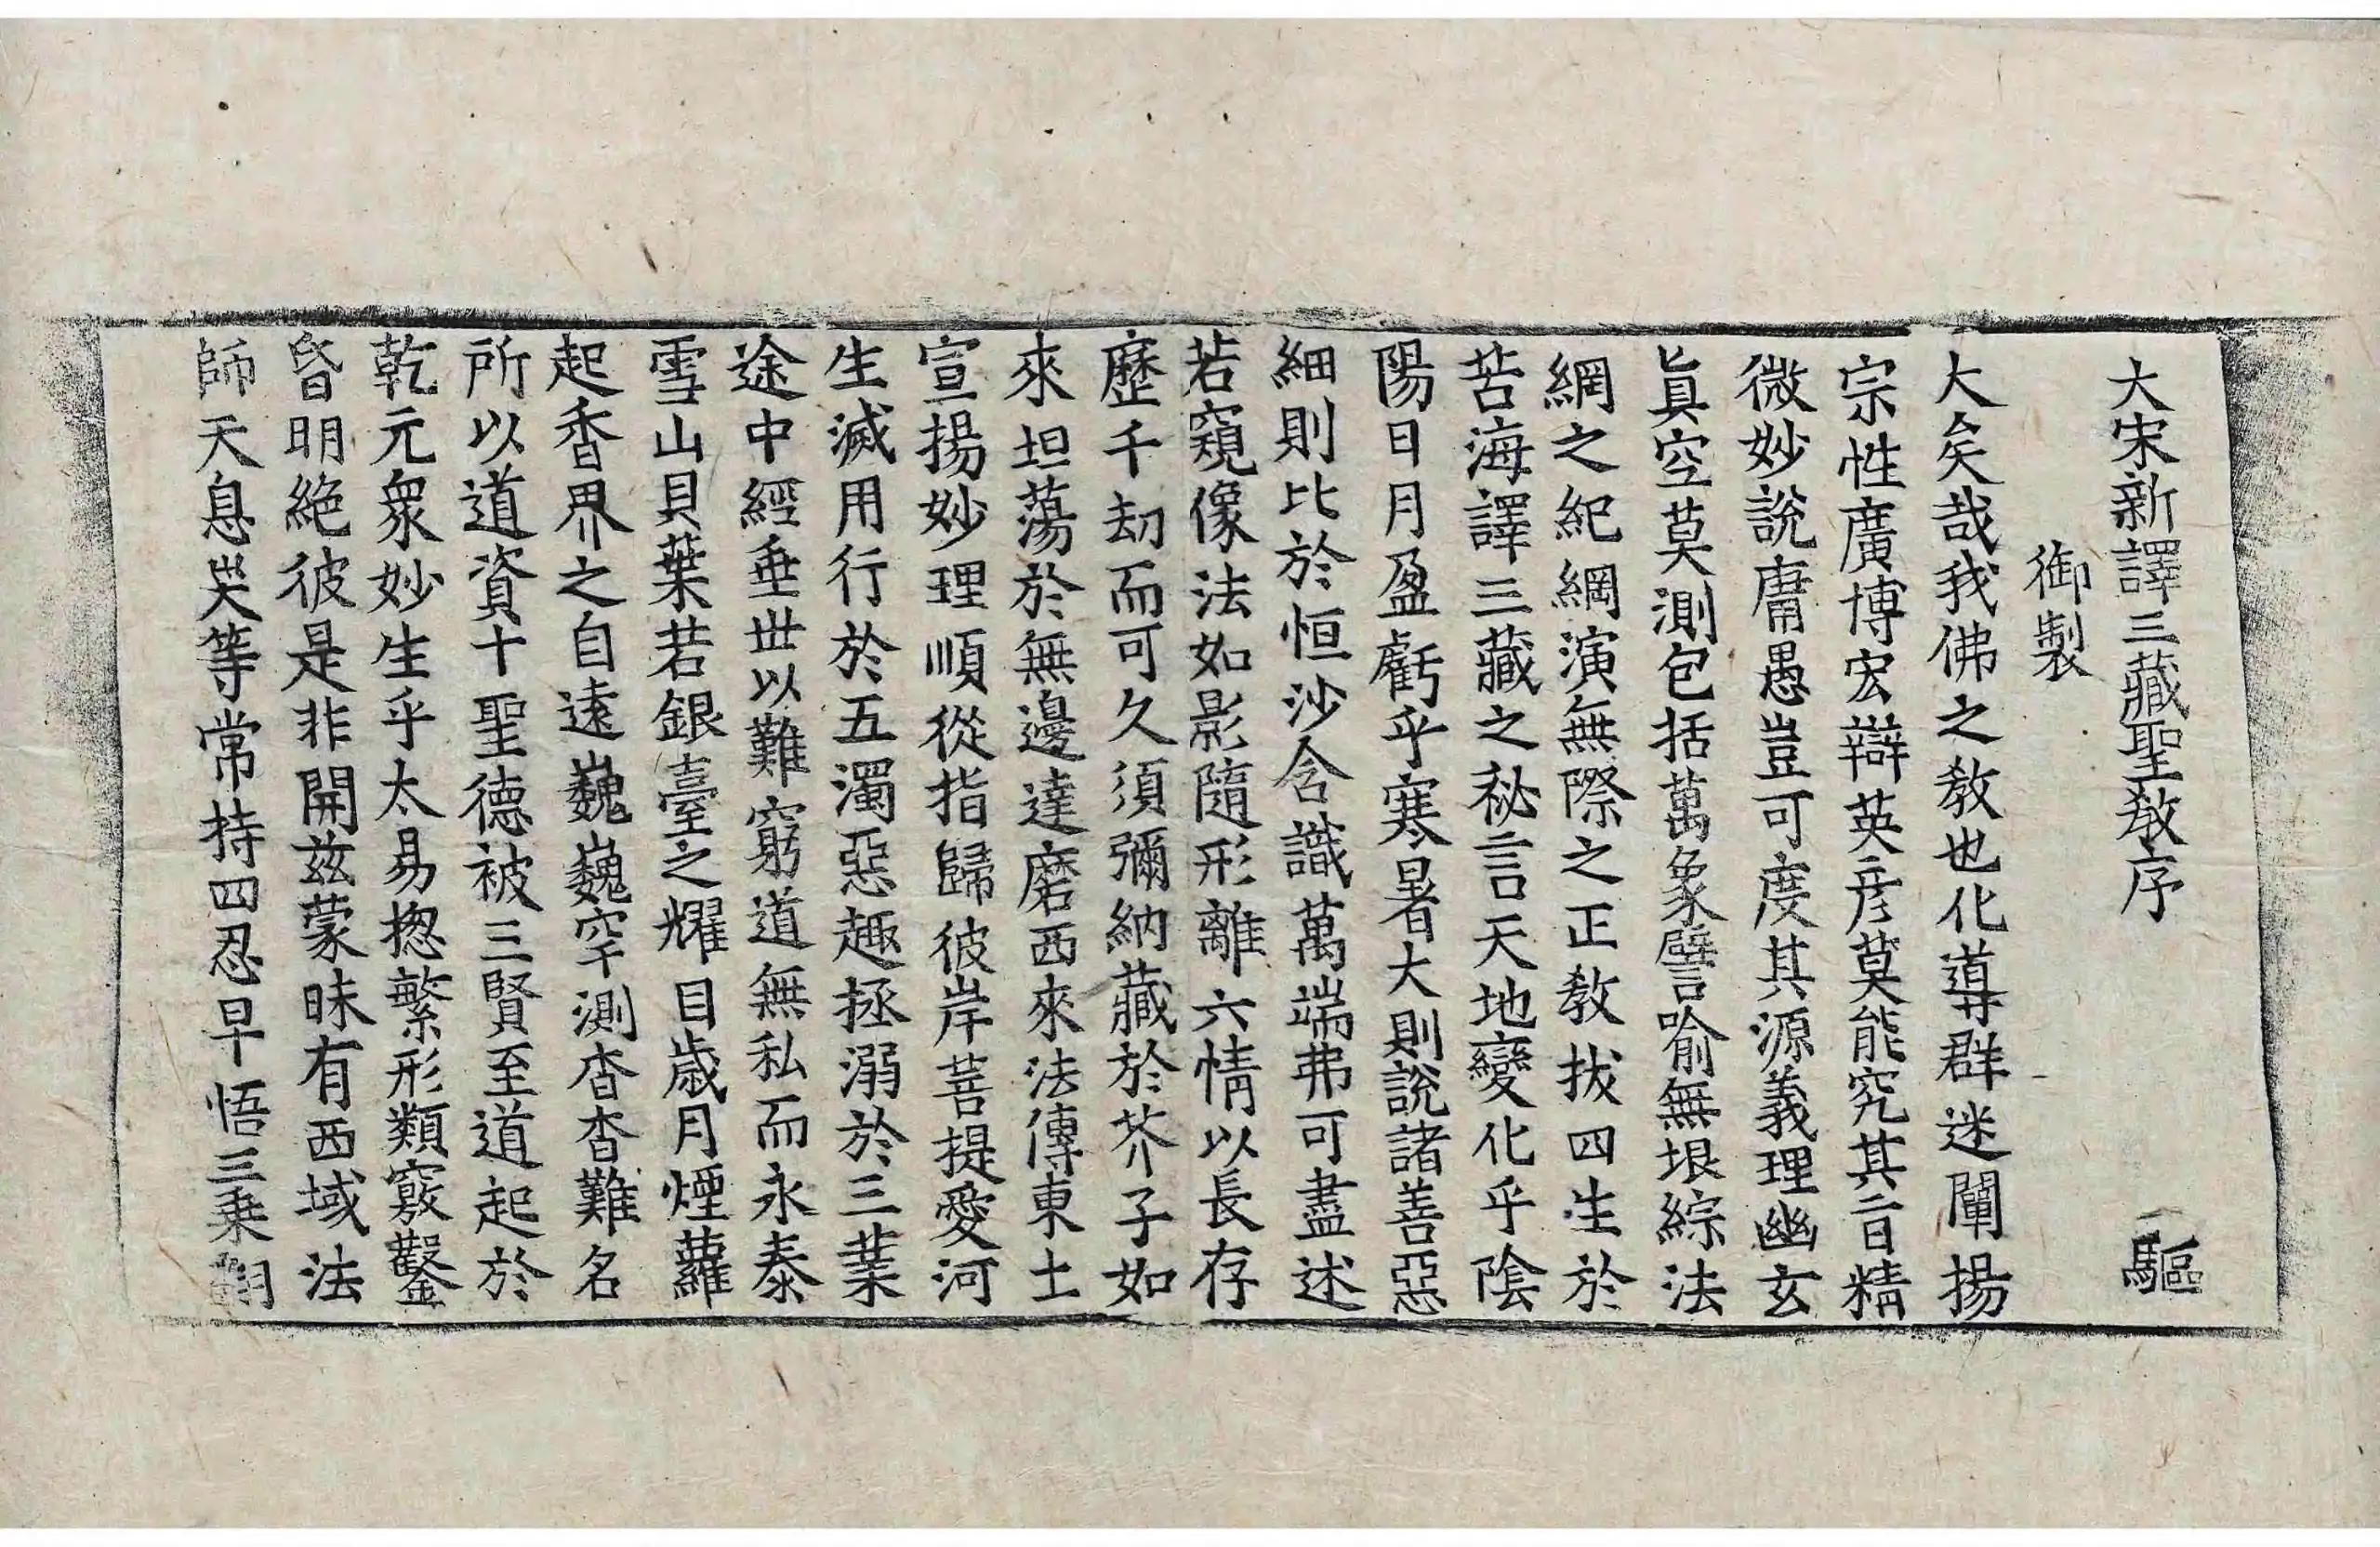 大宋新譯三藏聖敎序 驅
御製
大矣哉我佛之敎也化導群迷闡揚
宗性廣博宏辯英彦莫能究其旨精
微妙說庸愚豈可度其源義理幽玄
眞空莫測包括萬象譬喻無垠綜法
網之紀綱演無際之正敎拔四生於
苦海譯三藏之秘言天地變化乎陰
陽日月盈虧乎寒暑大則說諸善惡
細則比於恒沙含識萬端弗可盡述
若窺像法如影隨形離六情以長存
歷千劫而可久須彌納藏於芥子如
來坦蕩於無邊達磨西來法傳東土
宣揚妙理順從指歸彼岸菩提愛河
生滅用行於五濁惡趣拯溺於三業
途中經垂世以難窮道無私而永泰
雪山貝葉若銀臺之耀目歲月煙蘿
起香界之自遠巍巍罕測杳杳難名
所以道資十聖德被三賢至道起於
乾元衆妙生乎太易揔繁形類竅鑿
昏明絶彼是非開茲蒙昧有西域法
師天息災等常持四忍早悟三乗翻